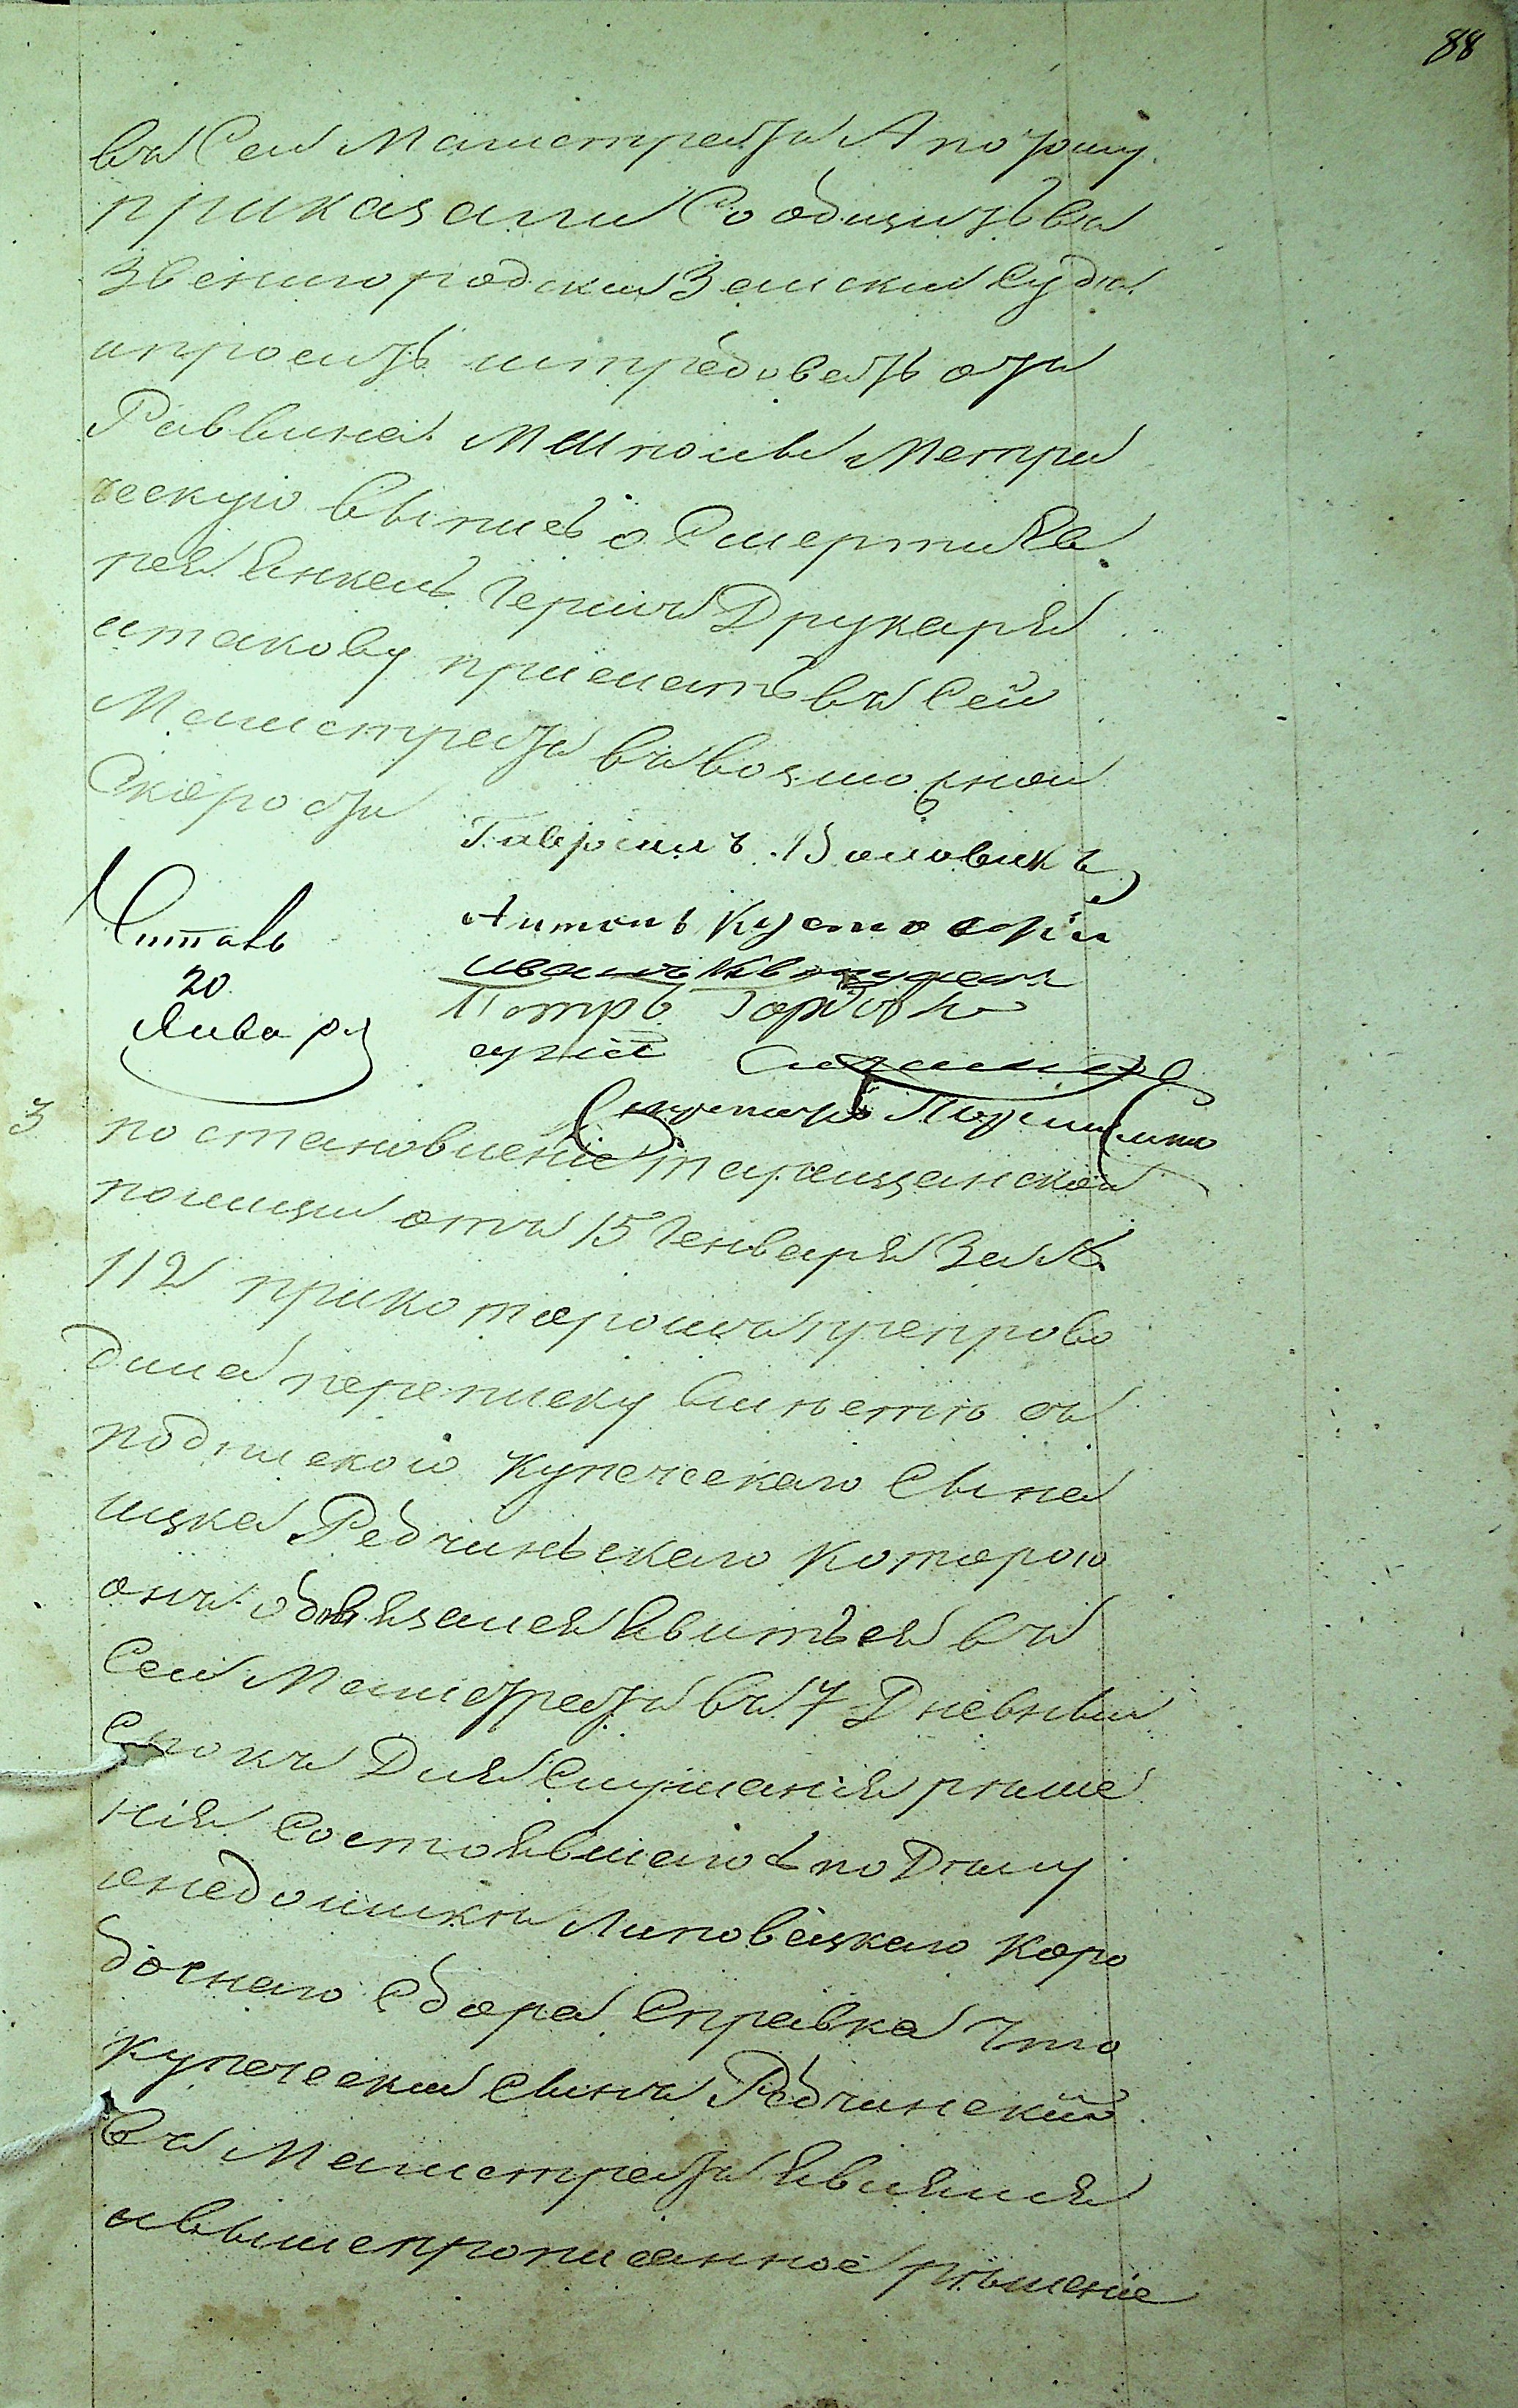 88
въ Сей Магистратъ А по тому
приказали Сообщить въ
Звенигородскій Земскій Судъ
и просить истребовать отъ
Раввина Метри
ческую выпись о Смерти Ев
рея Янкель Герша Друкаря
и такову прислать въ Сей
Магистратъ въ возможной
Скорости
Гавріилъ Воловикъ
Антонъ
Читалъ
20
Января
Петръ
Секретарь
3
постановленіе Таращанской
полиціи отъ 15 Генваря За №
112 при которомъ препрово
дила переписку вмѣсте съ
подпискою купеческаго Сына
Ицка Редчинскаго которою
онъ обязался явиться въ
Сей Магистратъ въ 7 Дневный
Срокъ Для Слушанія рѣше
нія Состоявшагось по Дѣлу
о недоимкѣ Липовецкаго коро
бочнаго Сбора Справка Что
купеческій Сынъ Редчинскій
Въ Магистратъ явился
и вышепрописанное рѣшеніе